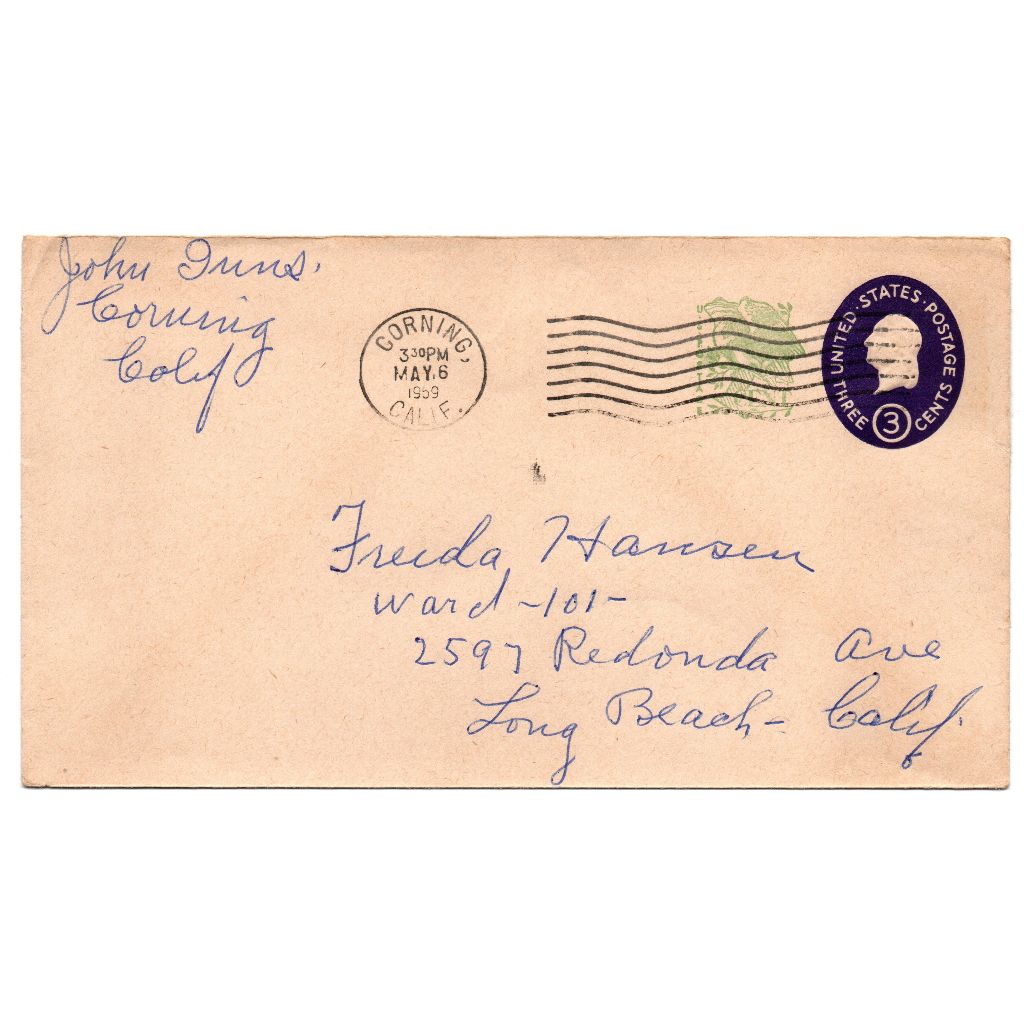 John Inns.
Corning
Calif
CORNING,
3 30 PM
MAY. 6
1959
CALIF.
UNITED · STATES · POSTAGE
THREE 3 CENTS
Freida Hansen
Ward -101-
2597 Redonda Ave
Long Beach - Calif.